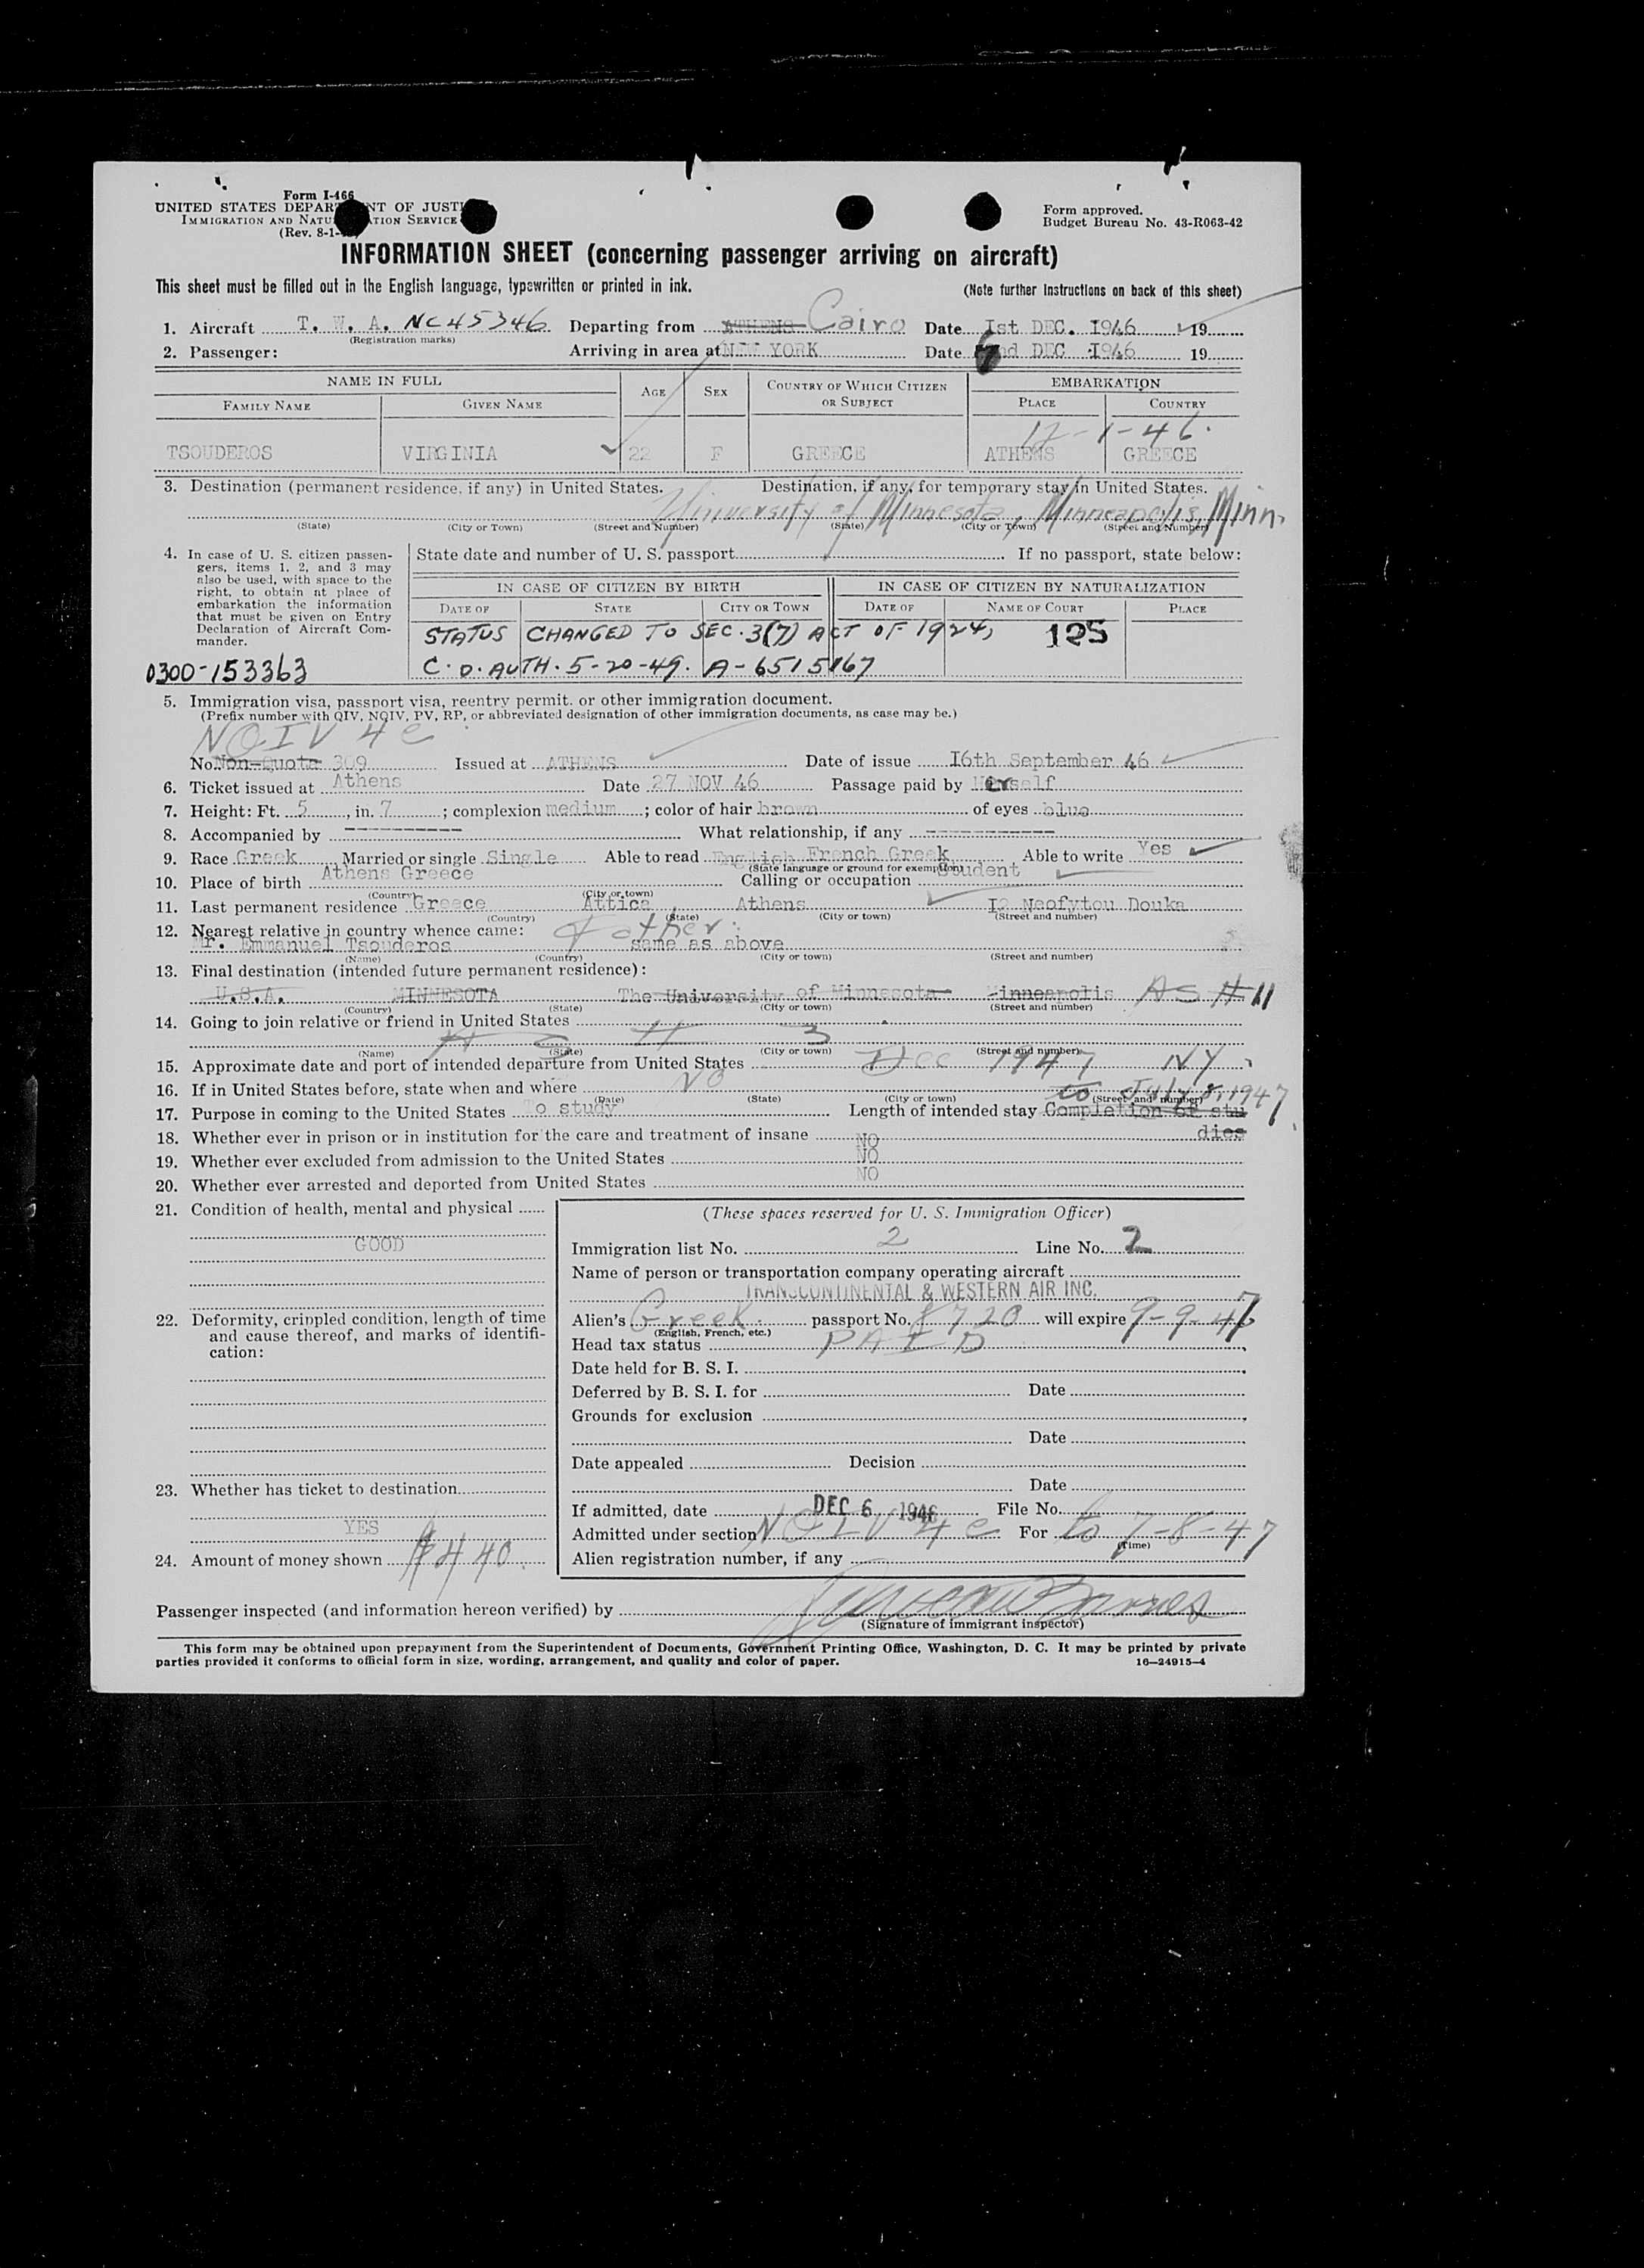 Form I-466
UNITED STATES DEPAR NT OF JUSTI
IMMIGRATION AND NATU TION SERVICE
(Rev. 8-1-
Form approved.
Budget Bureau No. 43-R063-42
INFORMATION SHEET (concerning passenger arriving on aircraft)
This sheet must be filled out in the English language, typewritten or printed in ink.
(Note further instructions on back of this sheet)
1. Aircraft T. W. A. NC45346 Departing from ATHENS Cairo Date Ist DEC. I946 19
(Registration marks)
2. Passenger: Arriving in area at NEW YORK Date 6 nd DEC I946 19
NAME IN FULL AGE SEX COUNTRY OF WHICH CITIZEN OR SUBJECT EMBARKATION
FAMILY NAME GIVEN NAME PLACE COUNTRY
12-1-46.
TSOUDEROS VIRGINIA 22 F GREECE ATHENS GREECE
3. Destination (permanent residence, if any) in United States. Destination, if any, for temporary stay in United States.
University of Minnesota, Minneapolis, Minn.
(State) (City or Town) (Street and Number) (State) (City or Town) (Street and Number)
4. In case of U. S. citizen passengers, items 1, 2, and 3 may also be used, with space to the right, to obtain at place of embarkation the information that must be given on Entry Declaration of Aircraft Commander.
State date and number of U. S. passport If no passport, state below:
IN CASE OF CITIZEN BY BIRTH IN CASE OF CITIZEN BY NATURALIZATION
DATE OF STATE CITY OR TOWN DATE OF NAME OF COURT PLACE
STATUS CHANGED TO SEC. 3(7) ACT OF 1924, 125
0300-153363 C.O. AUTH. 5-20-49. A-6515167
5. Immigration visa, passport visa, reentry permit, or other immigration document.
(Prefix number with QIV, NQIV, PV, RP, or abbreviated designation of other immigration documents, as case may be.)
NQIV 4e
No. Non-quota 309 Issued at ATHENS Date of issue I6th September 46
6. Ticket issued at Athens Date 27 NOV 46 Passage paid by Herself
7. Height: Ft. 5, in. 7; complexion medium; color of hair brown of eyes blue
8. Accompanied by ---------- What relationship, if any ------------
9. Race Greek Married or single Single Able to read English French Greek Able to write Yes
(State language or ground for exemption)
10. Place of birth Athens Greece Calling or occupation Student
(Country) (City or town)
11. Last permanent residence Greece Attica Athens I2 Neofytou Douka
(Country) (State) (City or town) (Street and number)
12. Nearest relative in country whence came: Father.
Mr. Emmanuel Tsouderos same as above
(Name) (Country) (City or town) (Street and number)
13. Final destination (intended future permanent residence):
U.S.A. MINNESOTA The University of Minnesota Minneapolis AS # 11
(Country) (State) (City or town) (Street and number)
14. Going to join relative or friend in United States
A S # 3
(Name) (State) (City or town) (Street and number)
15. Approximate date and port of intended departure from United States Dec 1947 NY.
16. If in United States before, state when and where NO to July 8, 1947
(Date) (State) (City or town) (Street and number)
17. Purpose in coming to the United States To study Length of intended stay Completion of stu
dies
18. Whether ever in prison or in institution for the care and treatment of insane NO
19. Whether ever excluded from admission to the United States NO
20. Whether ever arrested and deported from United States NO
21. Condition of health, mental and physical
GOOD
22. Deformity, crippled condition, length of time and cause thereof, and marks of identification:
23. Whether has ticket to destination
YES
24. Amount of money shown $440.
(These spaces reserved for U. S. Immigration Officer)
Immigration list No. 2 Line No. 2
Name of person or transportation company operating aircraft
TRANSCONTINENTAL & WESTERN AIR INC.
Alien's Greek passport No. 8720 will expire 9-9-47
(English, French, etc.)
Head tax status PAID
Date held for B. S. I.
Deferred by B. S. I. for Date
Grounds for exclusion
Date
Date appealed Decision
Date
If admitted, date DEC 6 1946 File No.
Admitted under section NQIV 4e For to 7-8-47
(Time)
Alien registration number, if any
Passenger inspected (and information hereon verified) by
(Signature of immigrant inspector)
This form may be obtained upon prepayment from the Superintendent of Documents, Government Printing Office, Washington, D. C. It may be printed by private
parties provided it conforms to official form in size, wording, arrangement, and quality and color of paper. 16—24915-4